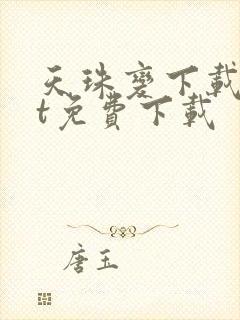 天珠變下載
t免費下載
唐玉